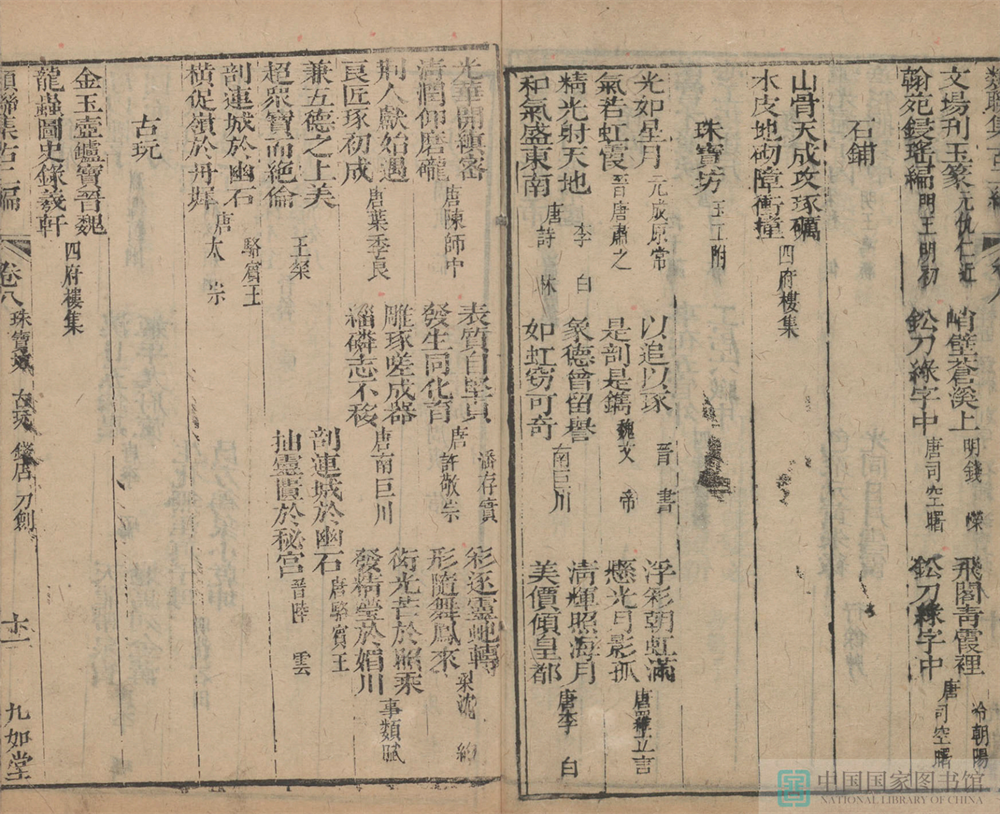 文場刋玉篆 元仇仁近
翰苑鋟瑤編 門王明初
峭壁蒼溪上 明錢
鈆刀綠字中 唐司空曙
飛閣靑霞裡 冷朝陽
鈆刀綠字中 唐司空曙
石鋪
山骨天成攻琢礪
水皮地砌障衝撞 四府樓集
珠寶坊 玉工附
光如星月 元成原常
氣若虹霞 晉唐肅之
以追以琢 晉書
是剖是鐫 魏文帝
浮彩朝虹滿
懸光月影孤
精光射天地 李白
和氣盛東南 唐詩
象德曾留譽
如虹窃可奇 南巨川
淸輝照海月
美價傾皇都 唐李白
光華開縝密
淸潤仰磨礲 唐陳師中
表質自堅貞 潘存實
發生同化育 唐許敬宗
彩逐靈虵轉
形隨舞鳳來 梁沈約
荊人獻始遇
良匠琢初成 唐葉季良
雕琢嗟成器
緇磷志不移 唐南巨川
衒光芒於照乘
發精瑩於媚川 事類賦
兼五德之上美
超眾寶而絶倫 王粲
剖連城於幽石 唐駱賓王
抽靈匱於秘宫 晉陸雲
剖連城於幽石 駱賓王
橫促嶺於丹墀 唐太宗
古玩
金玉壺鑪寶晉魏
龍蟲圖史錄羲軒 四府樓集
類聯集古二編 卷八 珠寶坊 古玩 錢店 刀創 十一 九如堂
中国国家图书馆
NATIONAL LIBRARY OF CHINA